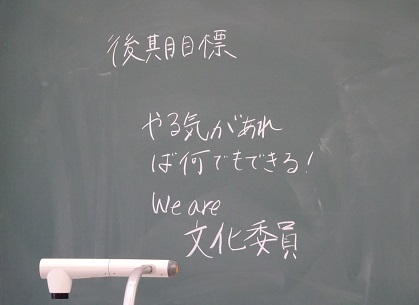 後期目標
やる気があれ
ば何でもできる!
We are
文化委員